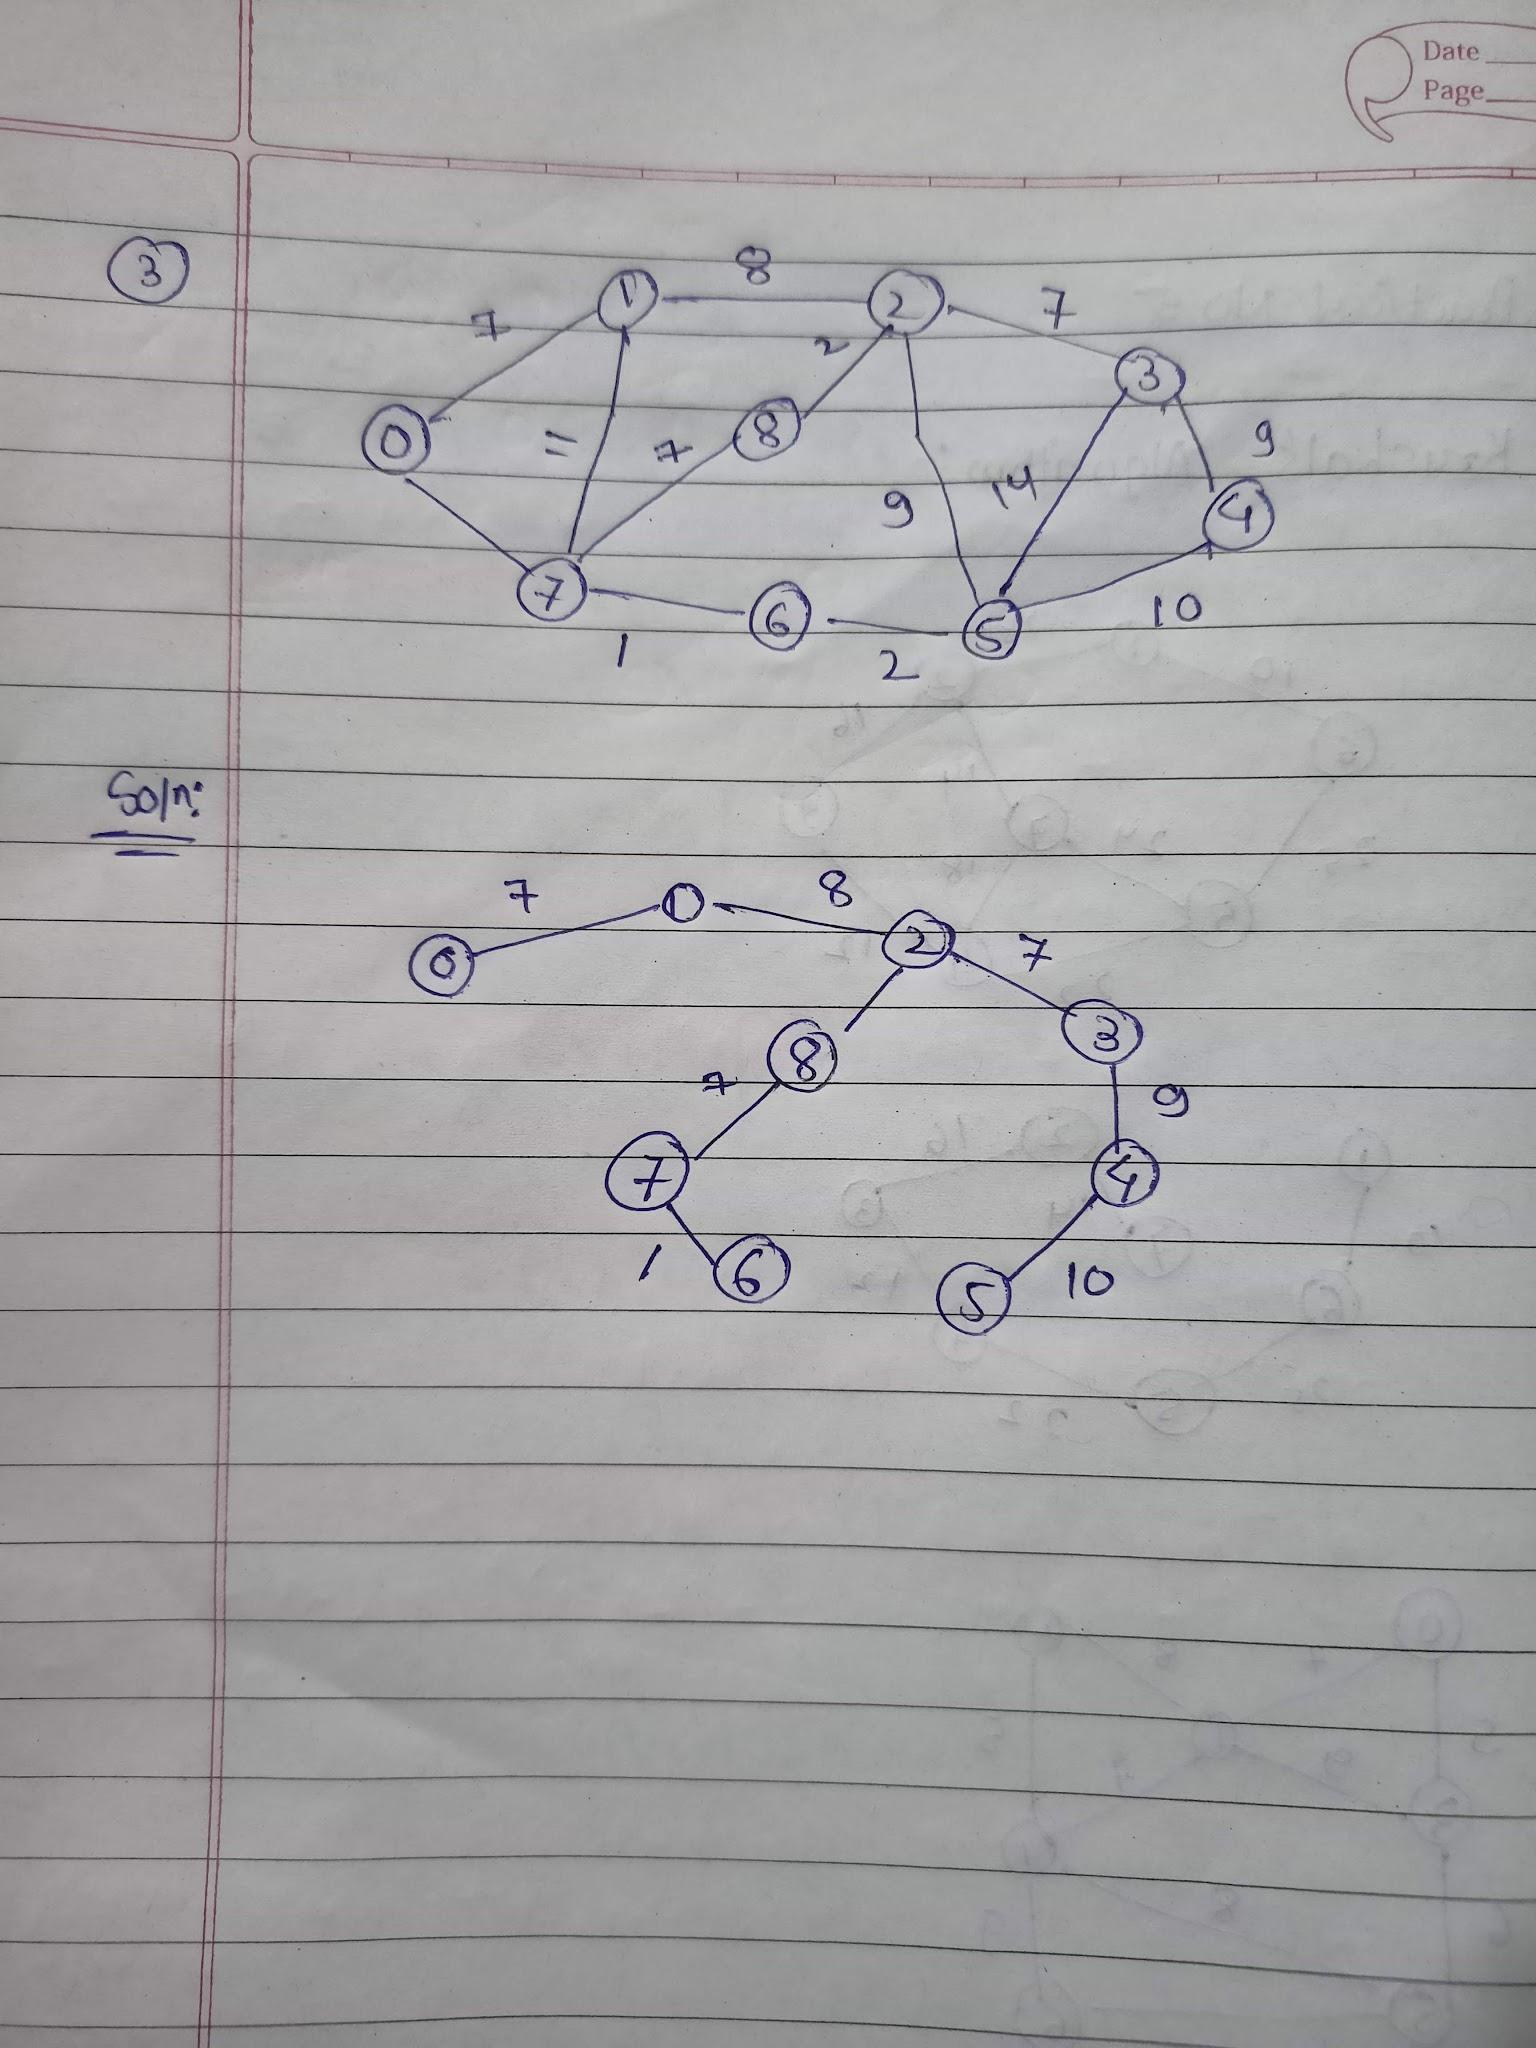 Date
Page
3
8
1
2
7
7
2
3
0
=
7
8
9
9
14
4
7
6
5
10
1
2
Soln:
7
8
0
1
2
7
8
3
7
9
7
4
1
6
5
10